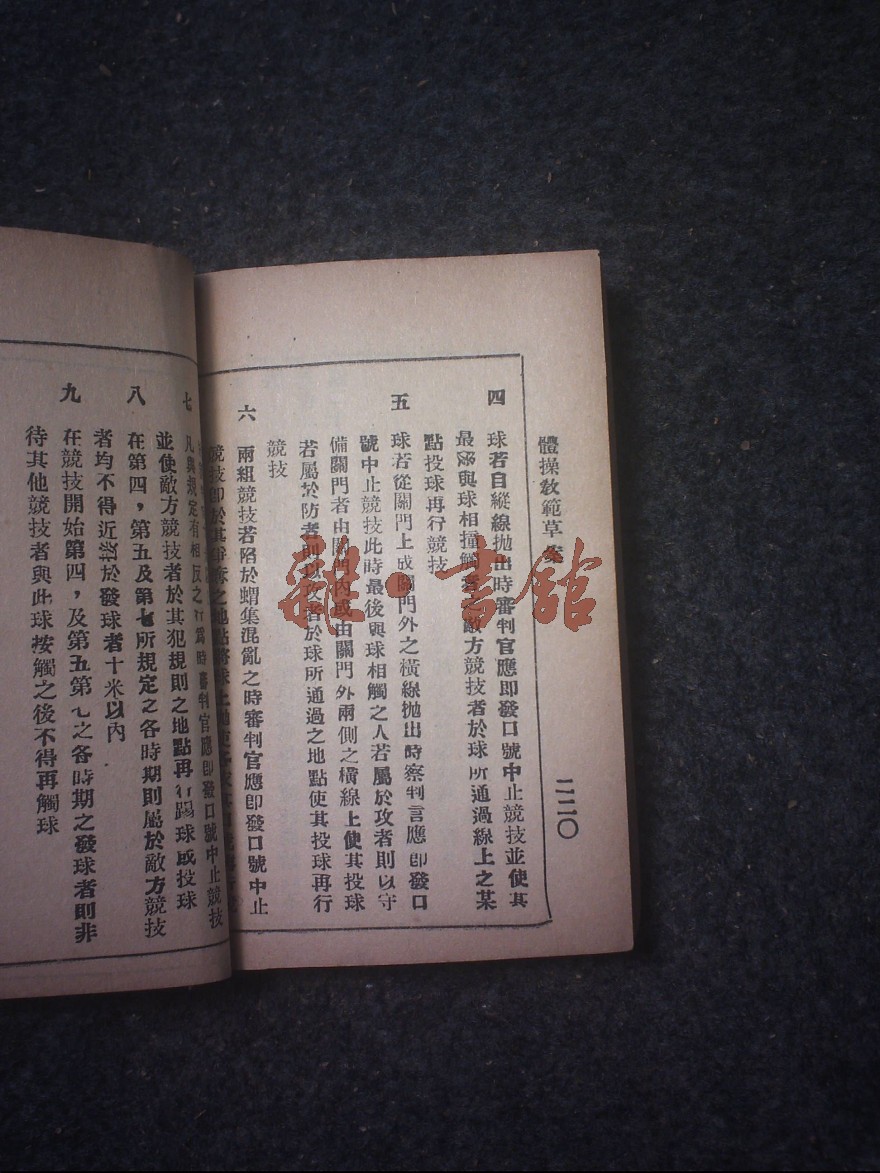 體操教範草案
二二〇
四 球若自縱線拋出時審判官應即發口號中止競技並使其
最後與球相撞觸者之敵方競技者於球所通過線上之某
點投球再行競技
五 球若從關門上或關門外之橫線拋出時察判言應即發口
號中止競技此時最後與球相觸之人若屬於攻者則以守
備關門者由關門內或由關門外兩側之橫線上使其投球
若屬於防者則以攻者於球所通過之地點使其投球再行
競技
六 兩組競技若陷於蝟集混亂之時審判官應即發口號中止
競技即於其
之地點將球上拋
七 凡與規定有相反之行爲時審判官應即發口號中止競技
並使敵方競技者於其犯規則之地點再行踢球或投球
八 在第四，第五及第七所規定之各時期則屬於敵方競技
者均不得近接於發球者十米以內
九 在競技開始第四，及第五第七之各時期之發球者則非
待其他競技者與此球按觸之後不得再觸球
雜·書館